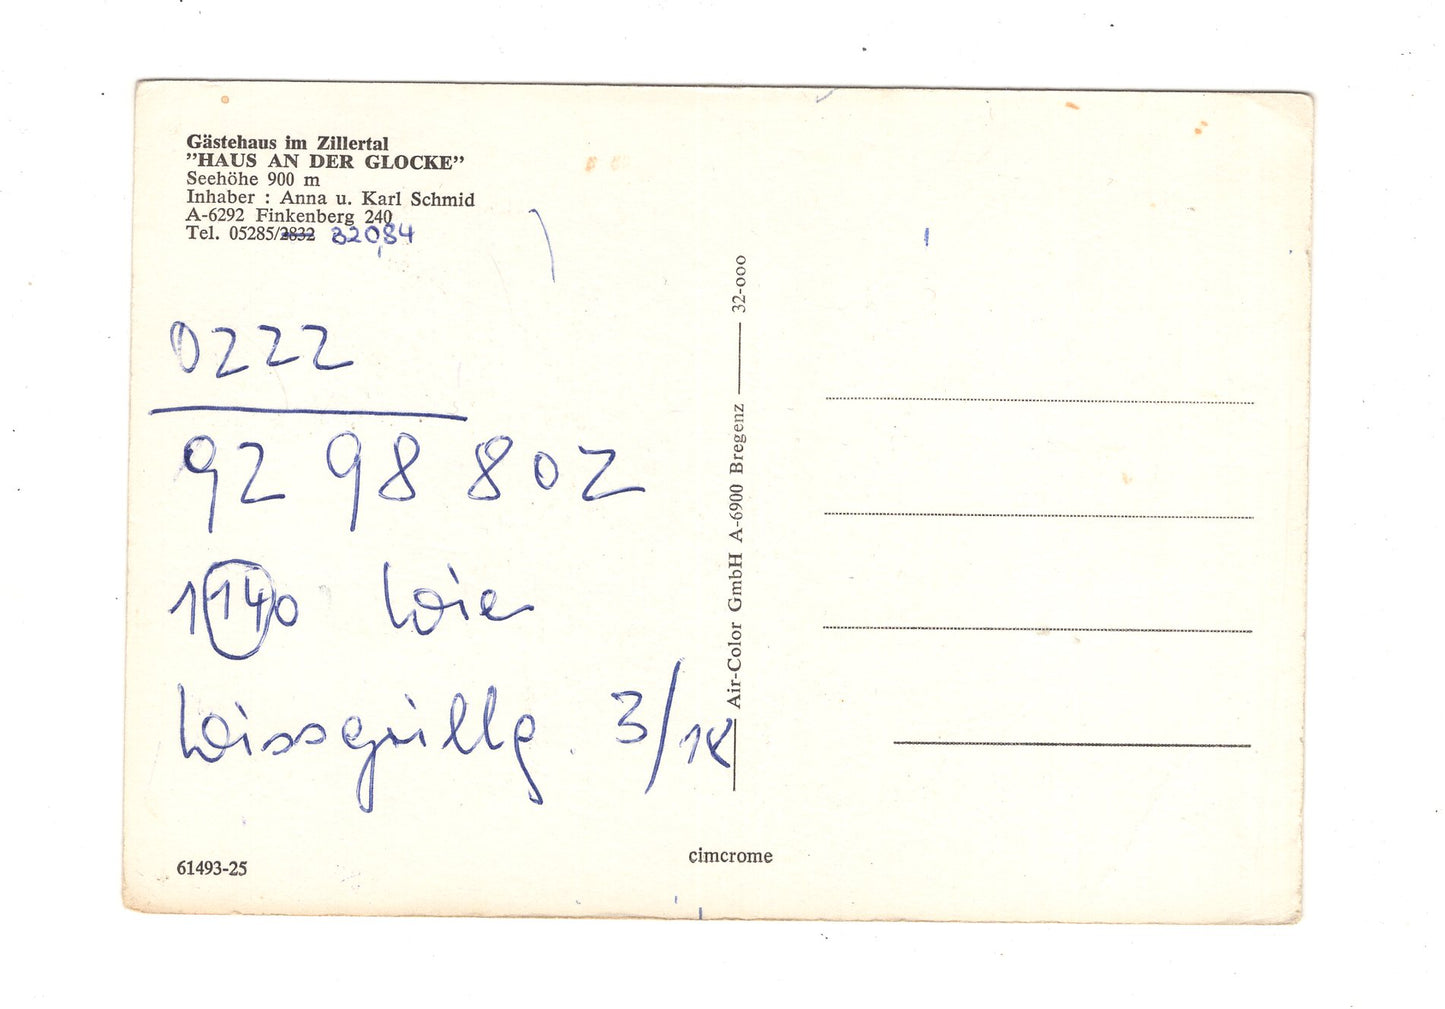 Gästehaus im Zillertal
”HAUS AN DER GLOCKE”
Seehöhe 900 m
Inhaber : Anna u. Karl Schmid
A-6292 Finkenberg 240
Tel. 05285/2832 32084
0222
92 98 802
1140 Wien
Wissgrillg. 3/18
Air-Color GmbH A-6900 Bregenz 32-000
61493-25
cimcrome